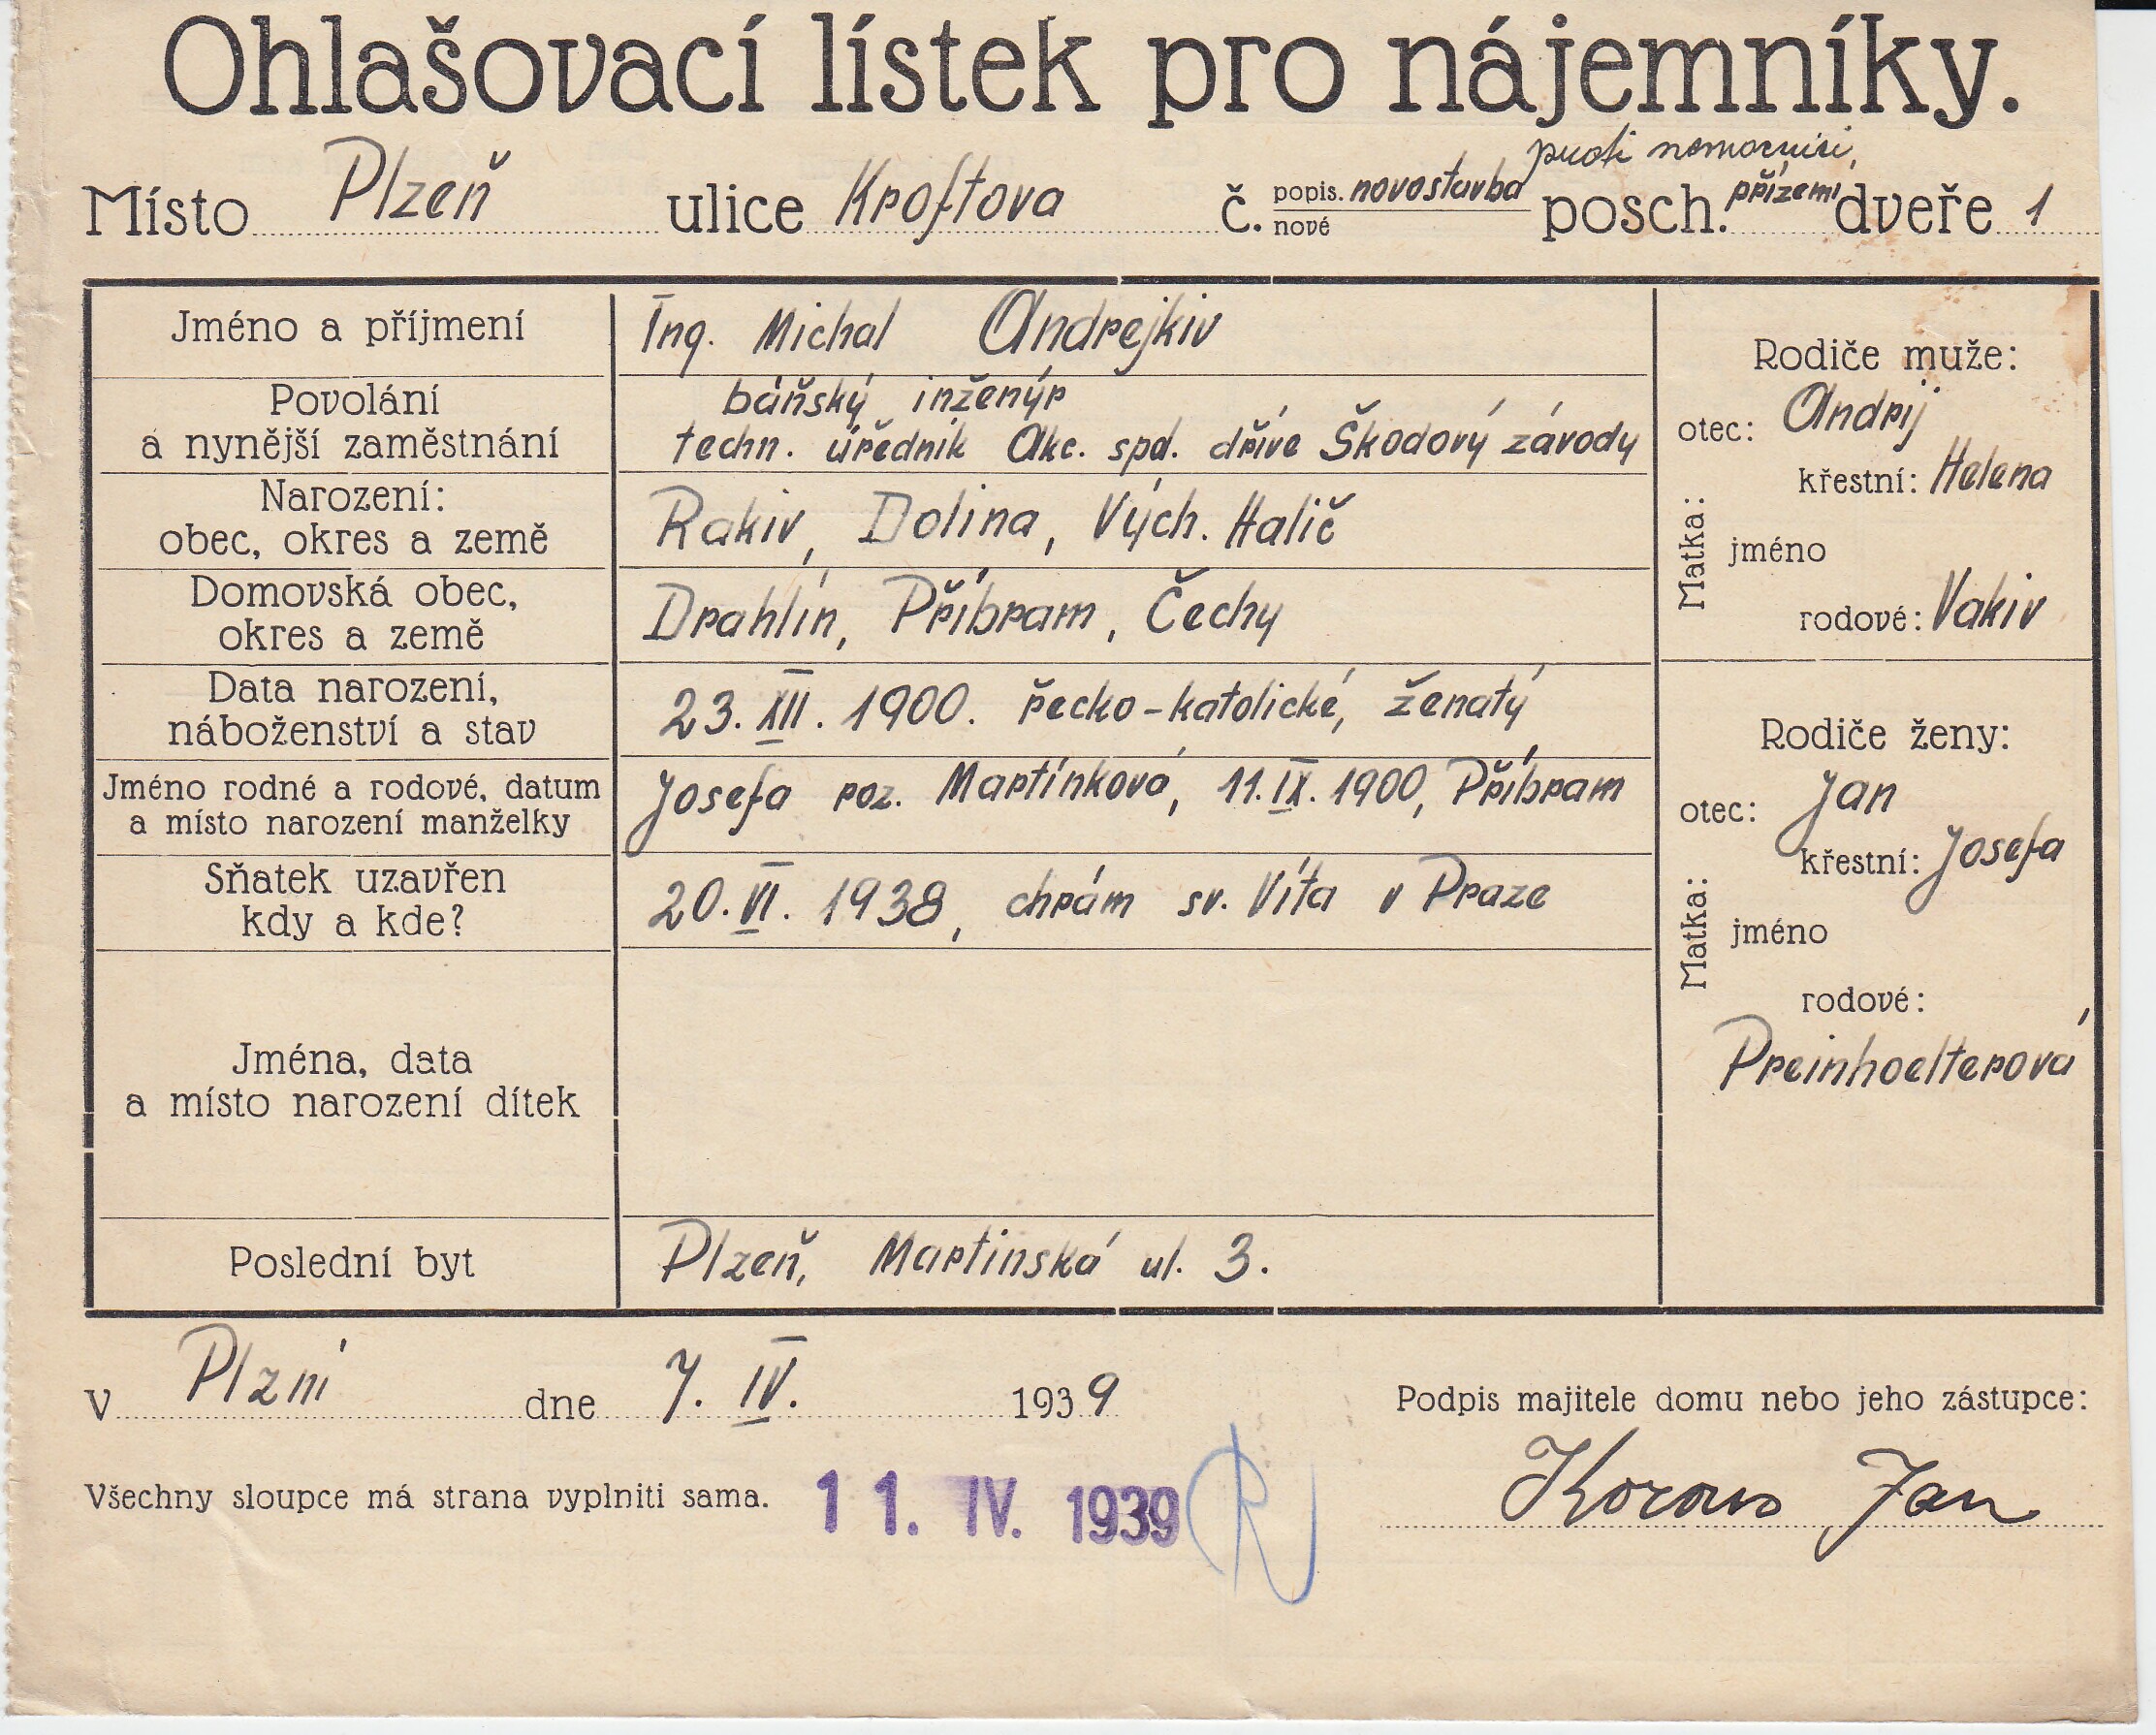 Ohlašovací lístek pro nájemníky.
proti nemocnici,
Místo Plzeň ulice Kroftova č. popis. novostavba nové posch. přízemí dveře 1
Jméno a příjmení
Ing. Michal Andrejkiv
Povolání
a nynější zaměstnání
báňský inženýr
techn. úředník Akc. spol. dříve Škodovy závody
Narození:
obec, okres a země
Rakiv, Dolina, Vých. Halič
Domovská obec,
okres a země
Drahlín, Příbram, Čechy
Data narození,
náboženství a stav
23. XII. 1900. řecko-katolické, ženatý
Jméno rodné a rodové, datum
a místo narození manželky
Josefa roz. Martínková, 11. IX. 1900, Příbram
Sňatek uzavřen
kdy a kde?
20. VI. 1938, chrám sv. Víta v Praze
Jména, data
a místo narození dítek
Poslední byt
Plzeň, Martinská ul. 3.
Rodiče muže:
otec: Andrij
Matka:
křestní: Helena
jméno
rodové: Vakiv
Rodiče ženy:
otec: Jan
Matka:
křestní: Josefa
jméno
rodové:
Preinhoelterová
v Plzni dne 7. IV. 1939
Podpis majitele domu nebo jeho zástupce:
Všechny sloupce má strana vyplniti sama.
11. IV. 1939
Jan